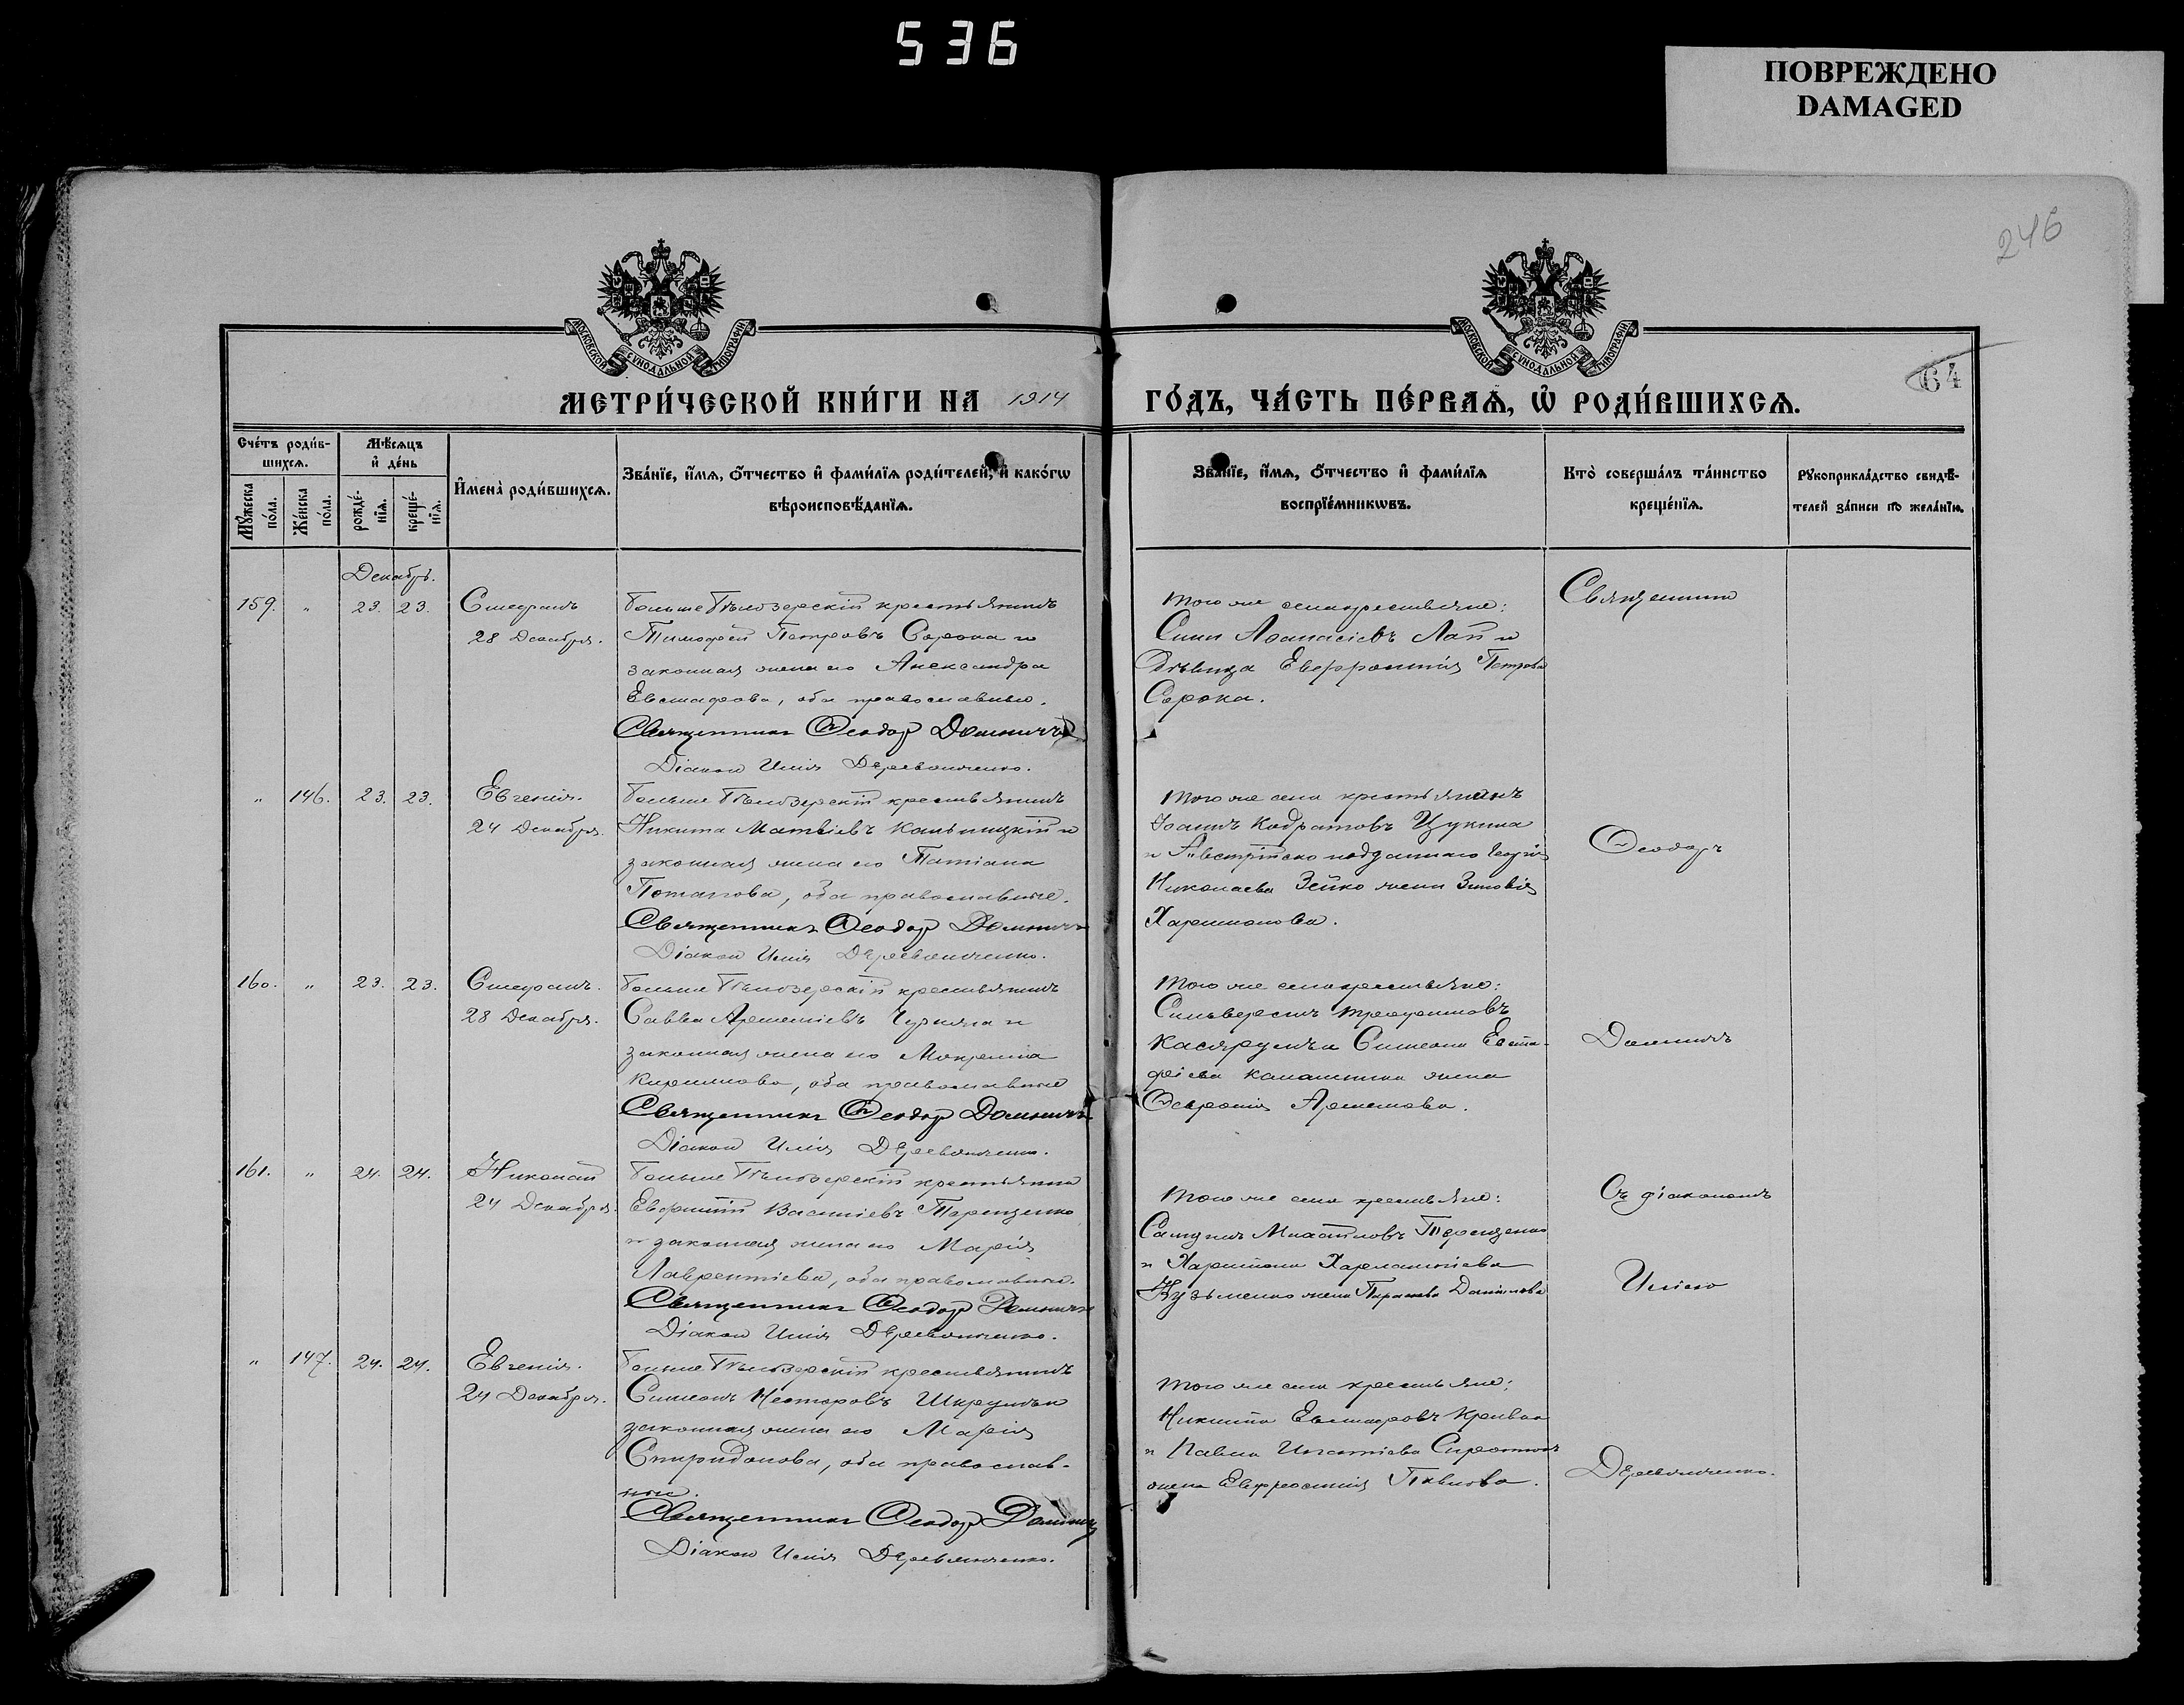 536
ПОВРЕЖДЕНО
DAMAGED
246
64
МОСКОВСКОЙ СѴНОДАЛЬНОЙ ТИПОГРАФІИ
МОСКОВСКОЙ СѴНОДАЛЬНОЙ ТИПОГРАФІИ
МЕТРИ́ЧЕСКОЙ КНИ́ГИ НА 1914 ГО́ДЪ, ЧА́СТЬ ПЕ́РВАѦ, Ѡ҆ РОДИ́ВШИХСѦ.
Сче́тъ роди́в-
шихсѧ.
Мꙋ́жеска по́ла.
Же́нска по́ла.
Мѣ́сѧцъ
и҆ де́нь
рожде́-нїѧ.
креще́-нїѧ.
И҆мена̀ роди́вшихсѧ.
Зва́нїе, и҆́мѧ, ѻ҆́тчество и҆ фами́лїѧ роди́телей, и҆ како́гѡ
вѣроисповѣ́данїѧ.
Зва́нїе, и҆́мѧ, ѻ҆́тчество и҆ фами́лїѧ
воспрїе́мникѡвъ.
Кто̀ соверша́лъ та́инство
креще́нїѧ.
Рꙋкоприкла́дство свидѣ́-
телей за́писи по жела́нїю.
Декабрь.
159. " 23. 23. Стефанъ
28 Декабря.
Больше Бѣлозерскій крестьянинъ
Тимофей Петровъ Сорока и
законная жена его Александра
Евстафова, оба православные.
Священникъ Ѳеодоръ Доминичъ
Діаконъ Илія Деревянченко.
того же села крестьяне:
Аѳанасіевъ Лап и
дѣвица Евфросинія Петрова
Сорока.
Священникъ
" 146. 23. 23. Евгенія.
24 Декабря.
Больше Бѣлозерскій крестьянинъ
Никита Матвіевъ и
законная жена его Татіана
Потапова, оба православные.
Священникъ Ѳеодоръ Доминичъ
Діаконъ Илія Деревянченко.
того же села крестьянинъ
Іоаннъ Кодратовъ Цукила
и Австрійско подданнаго Георгія
Николаева Зейко жена Зиновія
Харитонова.
Ѳеодоръ
160. " 23. 23. Стефанъ.
28 Декабря.
Больше Бѣлозерскій крестьянинъ
Савва Артеміевъ и
законная жена его Мокрина
Кириллова, оба православные
Священникъ Ѳеодоръ Доминичъ
Діаконъ Илія Деревянченко.
того же села крестьяне:
Сильверстъ Трофимовъ
и Симеона Евста-
фіева жена
Артемова.
Доминичъ
161. " 24. 24. Николай
24 Декабря.
Больше Бѣлозерскій крестьянинъ
Евфимій Василіевъ Терещенко
и законная жена его Марія
Лаврентіева, оба православные.
Священникъ Ѳеодоръ Доминичъ
Діаконъ Илія Деревянченко.
того же села крестьяне:
Самуилъ Михайловъ Терещенко
и Харитона Харлампіева
Кузьменко жена Параскева Даніилова
Съ діакономъ
Иліею
" 147. 24. 24. Евгенія.
24 Декабря.
Больше Бѣлозерскій крестьянинъ
Симеонъ Несторовъ и
законная жена его Марія
Спиридонова, оба православ-
ные.
Священникъ Ѳеодоръ Доминичъ
Діаконъ Илія Деревянченко.
того же села крестьяне:
Никита Евстафовъ
и Павла Игнатіева
жена Евфросинія Павлова.
Деревянченко.